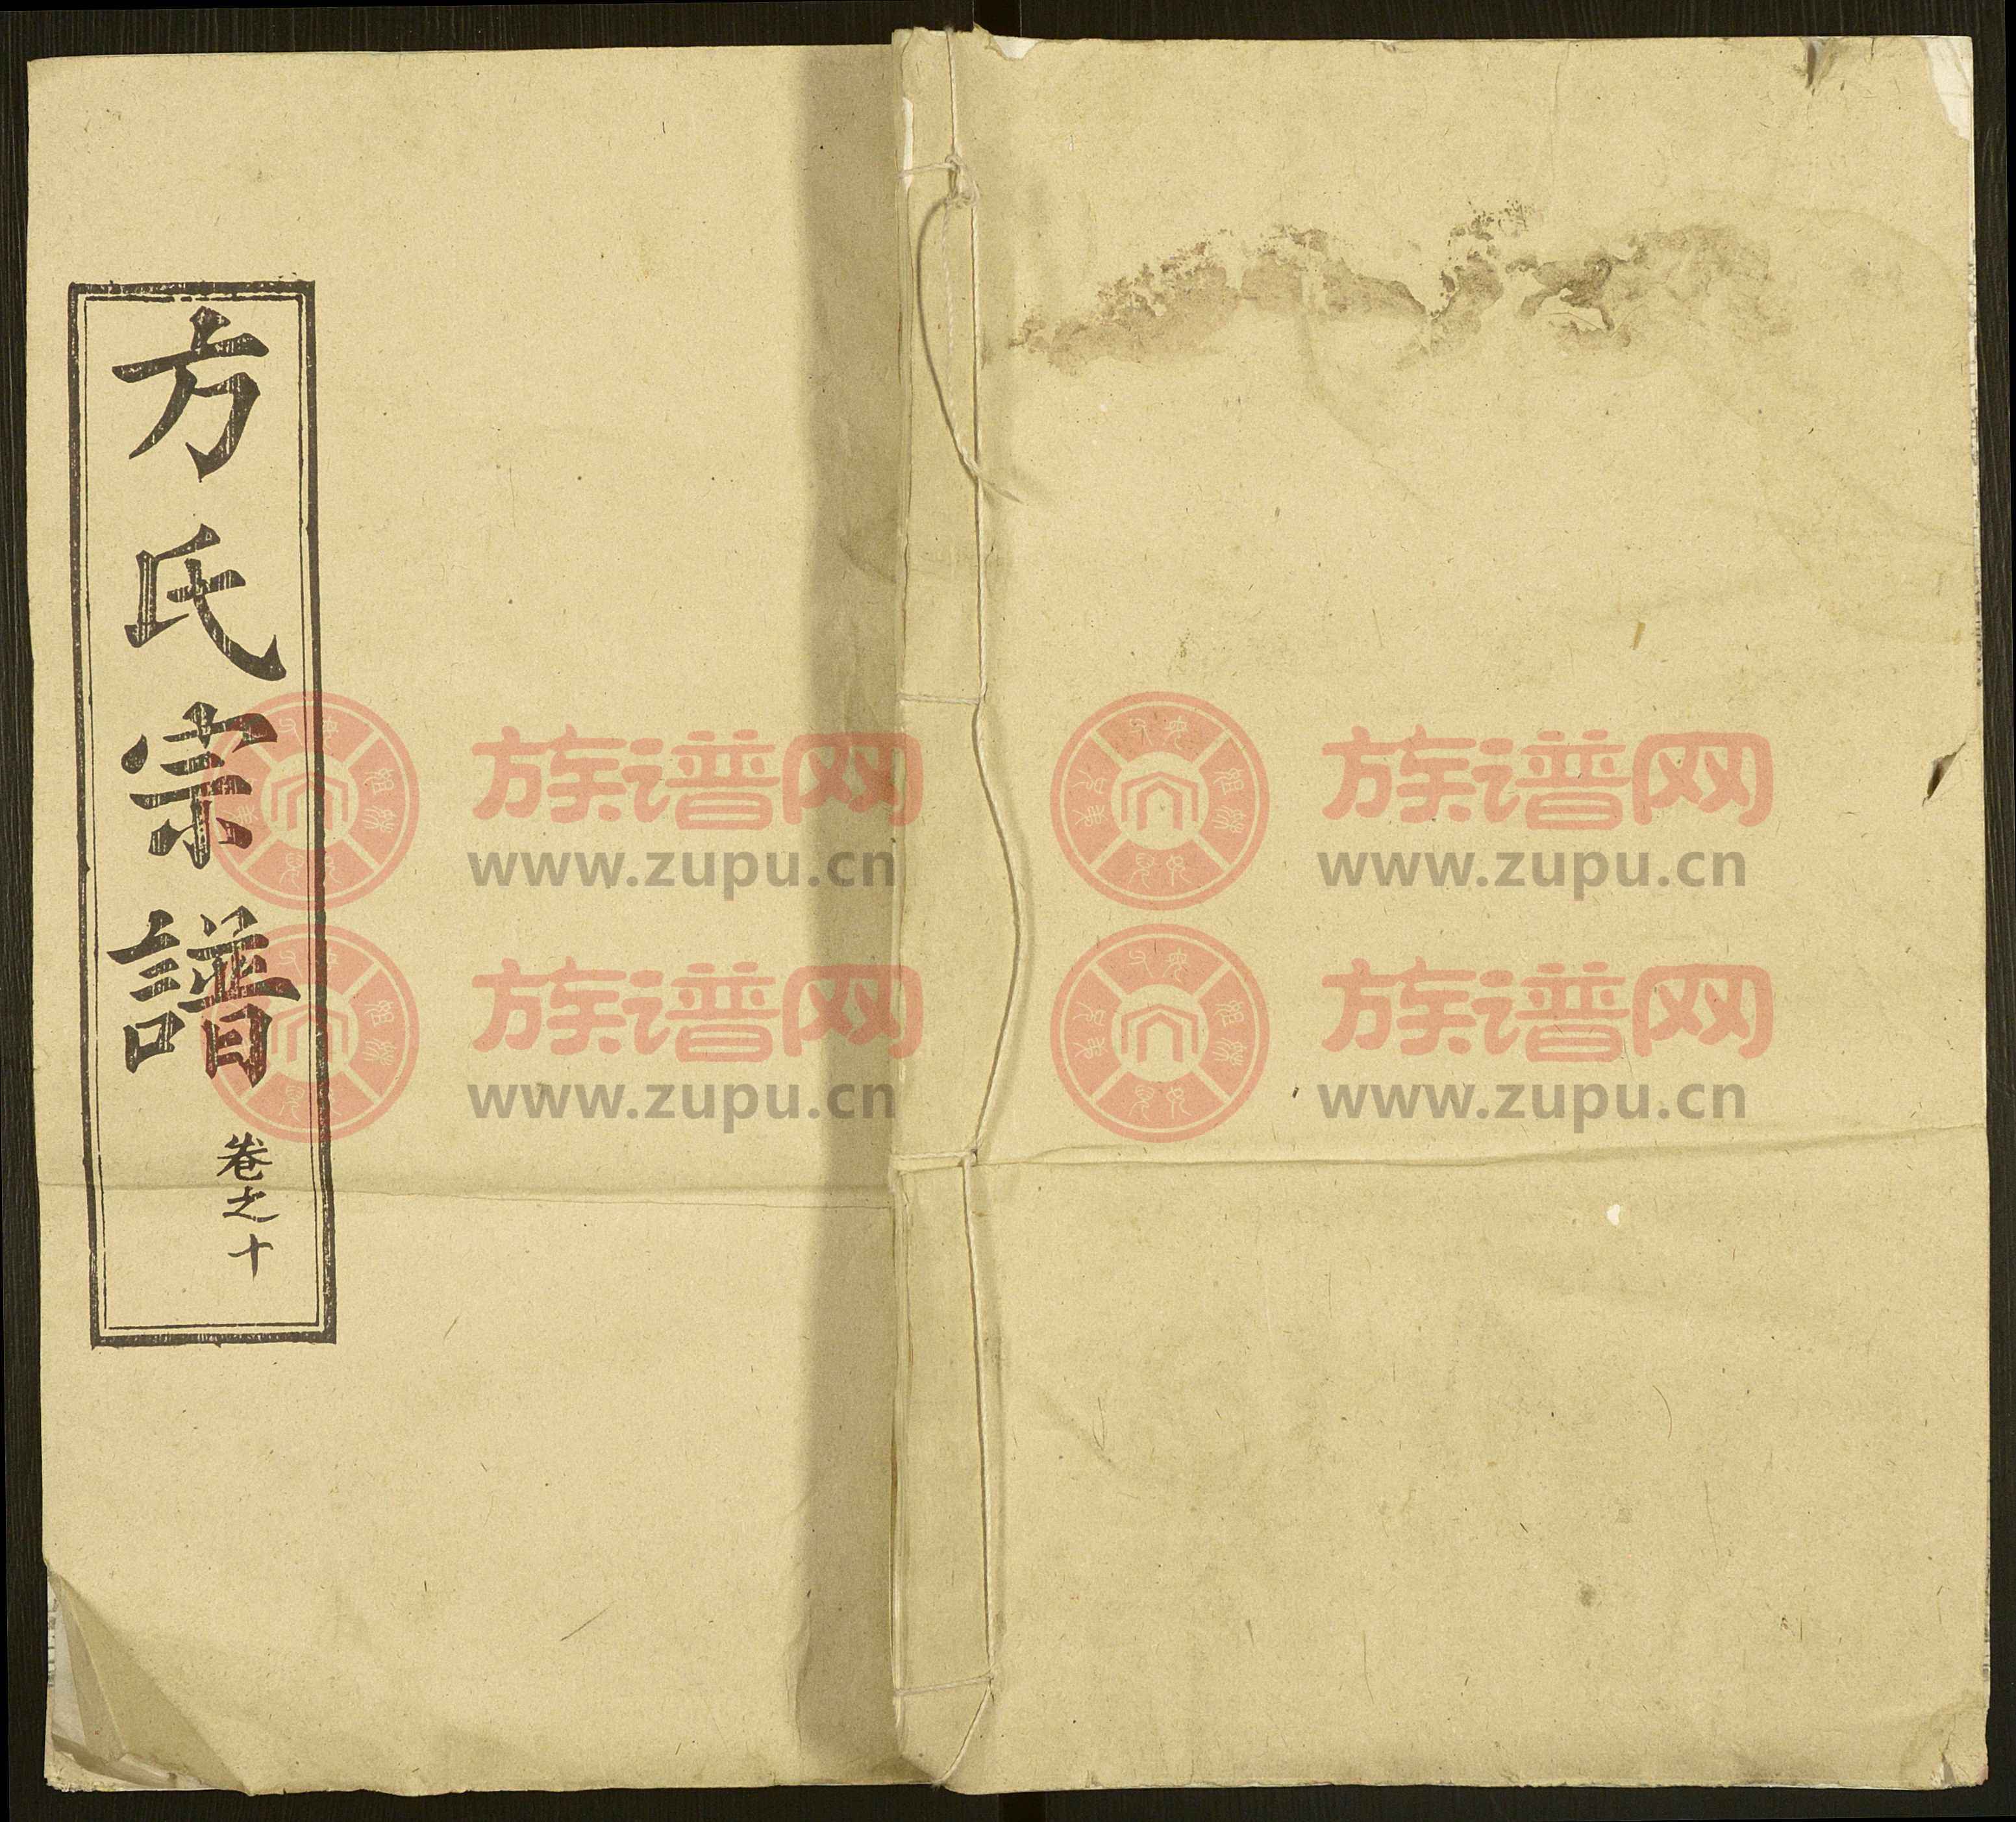 方氏宗譜
卷之十
族谱网 族谱网
www.zupu.cn www.zupu.cn
族谱网 族谱网
www.zupu.cn www.zupu.cn